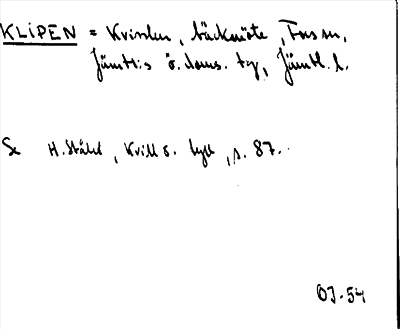 KLIPEN = Kvisslen, bäckmöte, Fors sn,
Jämtl:s ö. doms. tg, Jämtl. l.
Se H. Ståhl, Kvill o. tyll, s. 87.
OJ-54